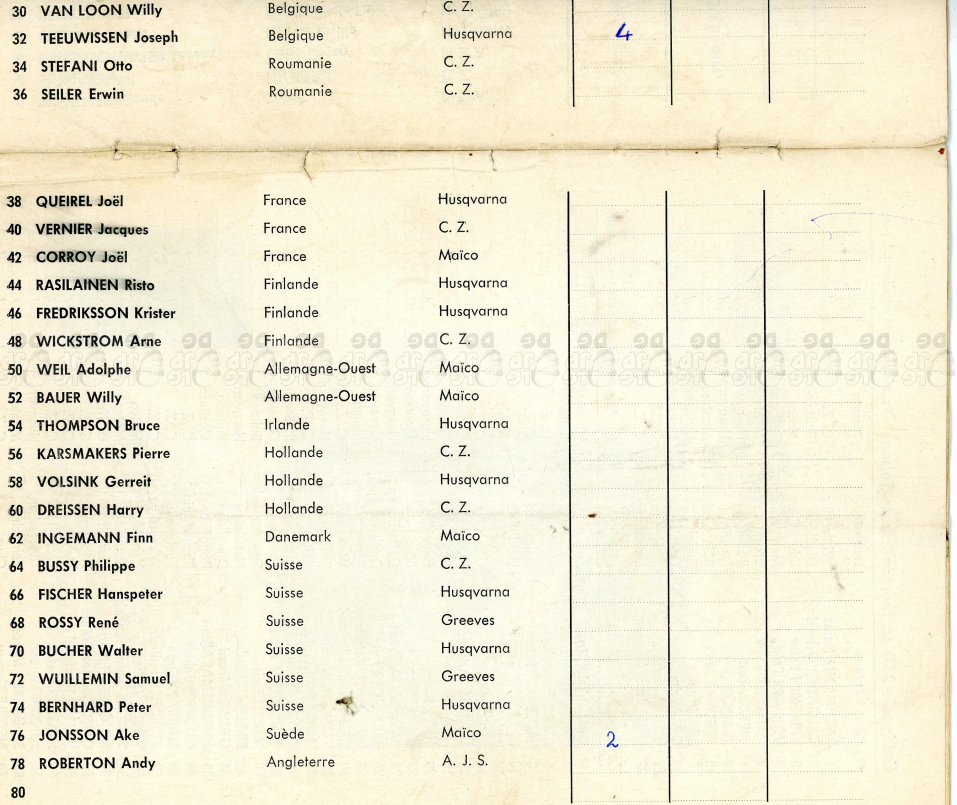 30 VAN LOON Willy Belgique C. Z.
32 TEEUWISSEN Joseph Belgique Husqvarna 4
34 STEFANI Otto Roumanie C. Z.
36 SEILER Erwin Roumanie C. Z.
38 QUEIREL Joël France Husqvarna
40 VERNIER Jacques France C. Z.
42 CORROY Joël France Maïco
44 RASILAINEN Risto Finlande Husqvarna
46 FREDRIKSSON Krister Finlande Husqvarna
48 WICKSTROM Arne Finlande C. Z.
50 WEIL Adolphe Allemagne-Ouest Maïco
52 BAUER Willy Allemagne-Ouest Maïco
54 THOMPSON Bruce Irlande Husqvarna
56 KARSMAKERS Pierre Hollande C. Z.
58 VOLSINK Gerreit Hollande Husqvarna
60 DREISSEN Harry Hollande C. Z.
62 INGEMANN Finn Danemark Maïco
64 BUSSY Philippe Suisse C. Z.
66 FISCHER Hanspeter Suisse Husqvarna
68 ROSSY René Suisse Greeves
70 BUCHER Walter Suisse Husqvarna
72 WUILLEMIN Samuel Suisse Greeves
74 BERNHARD Peter Suisse Husqvarna
76 JONSSON Ake Suède Maïco 2
78 ROBERTON Andy Angleterre A. J. S.
80